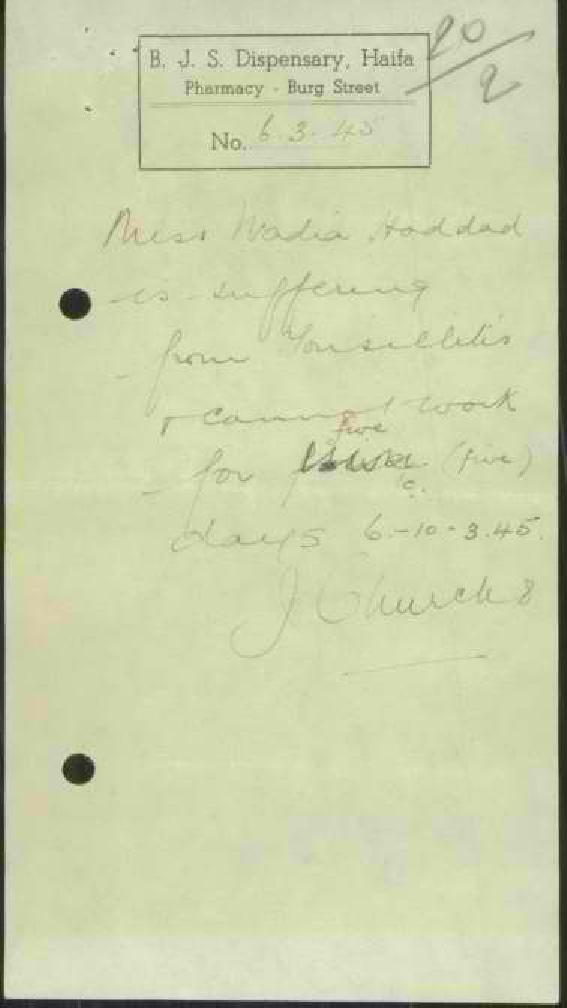 20/2
B. J. S. Dispensary, Haifa
Pharmacy - Burg Street
No. 6.3.45
Miss Nadia Haddad
is suffering
from Tonsillitis
& cannot work
five
for (five)
days 6.-10-3.45.
J Church